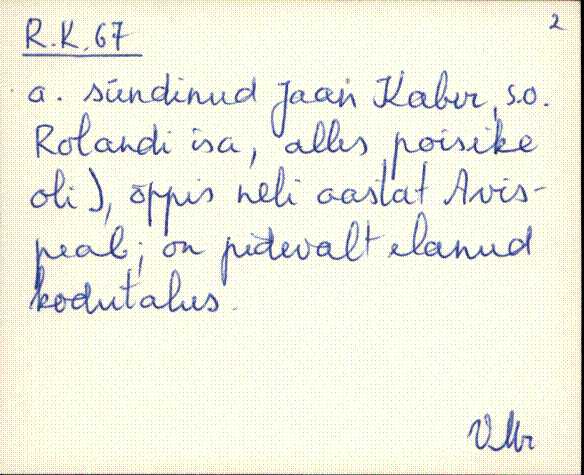 2
R.K. 67
a. sündinud Jaan Kaber, s.o.
Rolandi isa, alles poisike
oli), õppis neli aastat Avis-
peal; on pidevalt elanud
kodutalus.
VMr